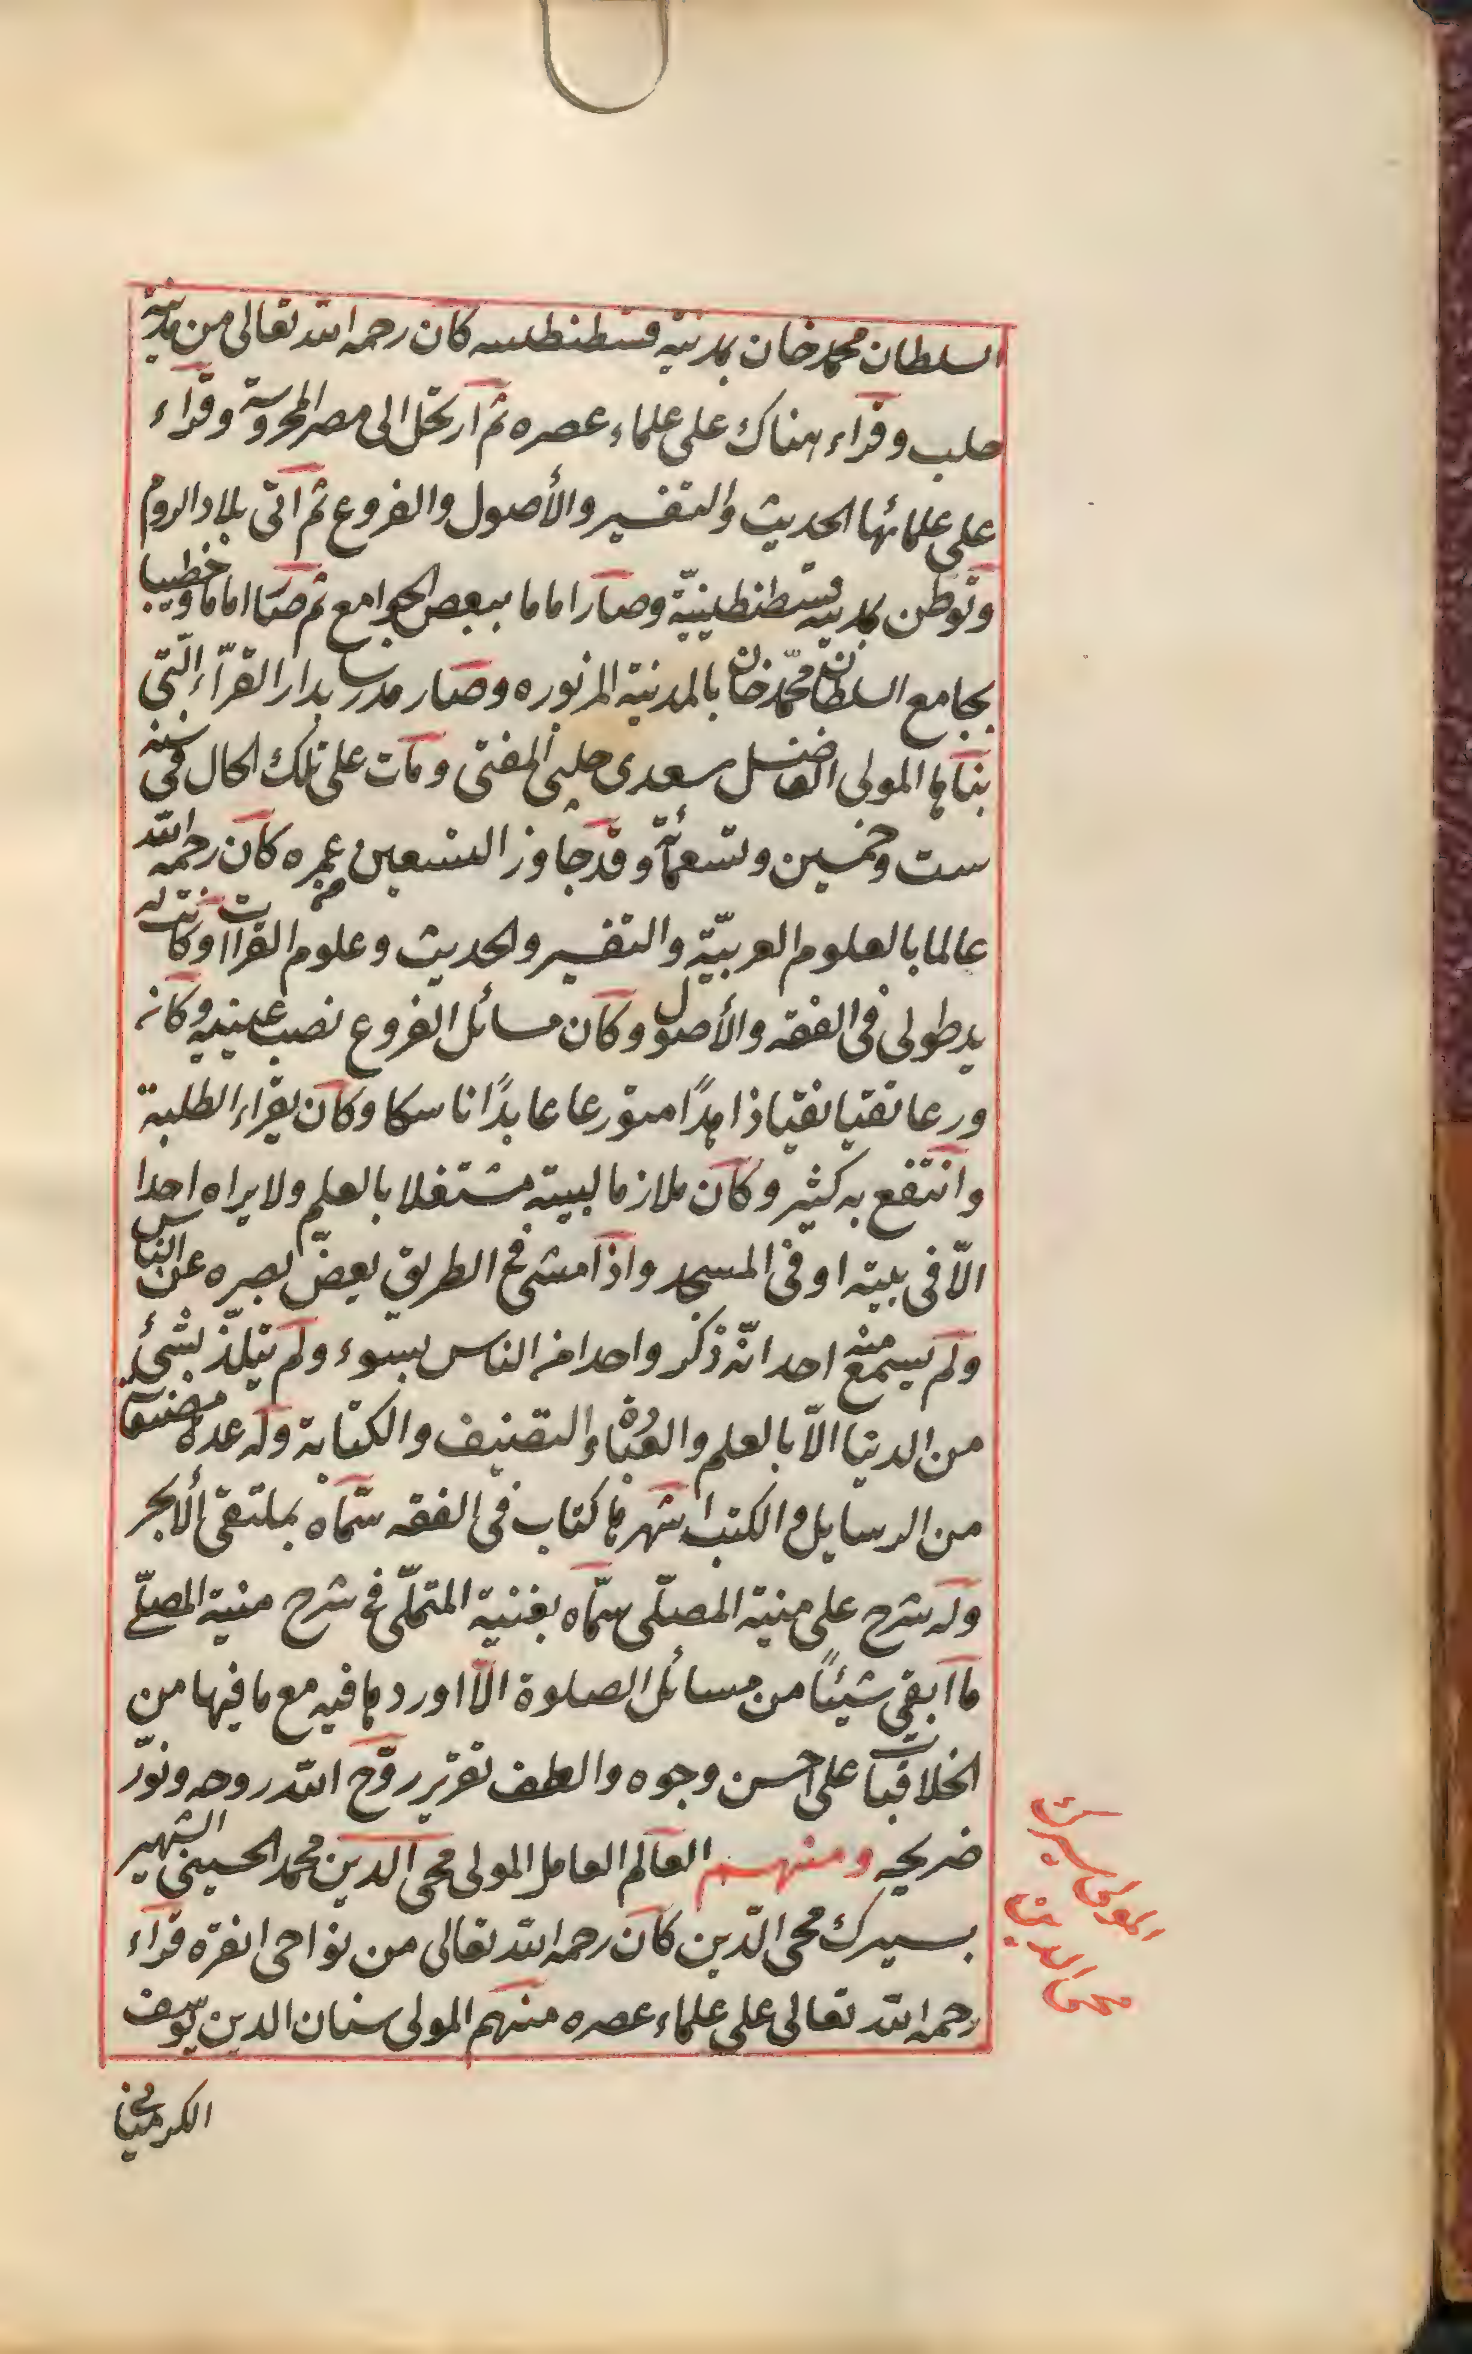 السلطان محمد خان بمدينة قسطنطينيه كان رحمه الله تعالى من مدينة
حلب وقرأء هناك على علماء عصره ثم ارتحل الى مصر المحروسة وقرأء
على علمائها الحديث والتفسير والأصول والفروع ثم اتى بلاد الروم
وتوطن بمدينة قسطنطينيّة وصار اماما ببعض الجوامع ثم صار اماما وخطيبا
بجامع السلطان محمّد خان بالمدنية المزبوره وصار مدرسا بدار القرآء الّتى
بناها المولى الفاضل سعدى چلبى المفتى ومات على تلك الحال فى سنة
ست وخمسين وتسعمأئة وقد جاوز التسعين من عمره كان رحمه الله
عالما بالعلوم العربيّة والتفسير والحديث وعلوم القراآت وكانت له
يد طولى فى الفقه والأصول وكان مسائل الفروع نصب عينيه وكان
ورعا تقيا نقيا زاهدًا متورعا عابدًا ناسكا وكان يقرأء الطلبة
وانتفع به كثير وكان ملازما لبيته مشتغلا بالعلم ولا يراه احدا
الّا فى بيته او فى المسجد واذا مشى فى الطريق يغض بصره عن الناس
ولم يسمع منه احد انّه ذكر واحدا من الناس بسوء ولم يتلذّذ بشئ
من الدنيا الّا بالعلم والعبادة والتصنيف والكتابة وله عدة مصنفات
من الرسايل والكتب اشهرها كتاب فى الفقه سمّاه بملتقى الأبحر
وله شرح على منية المصلّى سمّاه بغنية المتملّى فى شرح منية المصلّى
ما ابقى شيئًا من مسائل الصلوة الّا اوردها فيه مع ما فيها من
الخلافيات على احسن وجوه والطف تقرير روّح الله روحه ونوّر
ضريحه ومنهم العالم العامل المولى محى الدين محمد الحسينى الشهير
بسيرك محى الدّين كان رحمه الله تعالى من نواحى انقره قرأء
رحمه الله تعالى على علماء عصره منهم المولى سنان الدين يوسف
الكرميانى
المولى سيرك
محى الدين